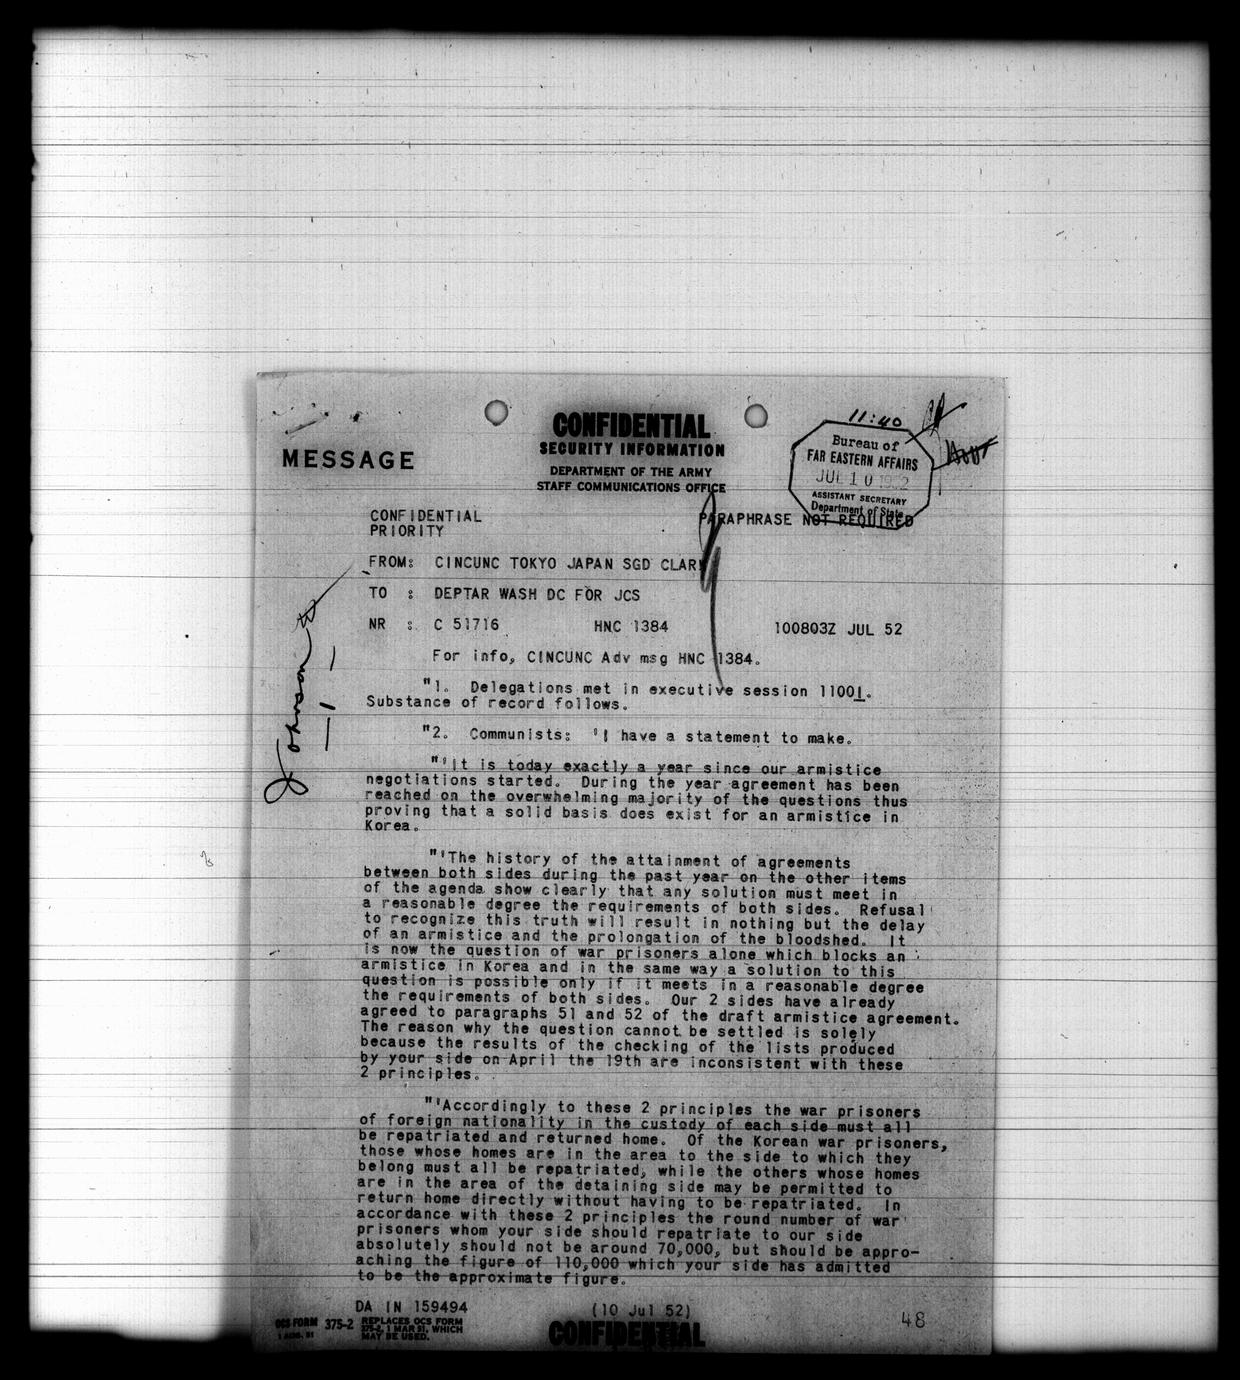 11:40
Bureau of
FAR EASTERN AFFAIRS
JUL 10 1952
ASSISTANT SECRETARY
Department of State
CONFIDENTIAL
SECURITY INFORMATION
DEPARTMENT OF THE ARMY
STAFF COMMUNICATIONS OFFICE
MESSAGE
CONFIDENTIAL PARAPHRASE NOT REQUIRED
PRIORITY
FROM: CINCUNC TOKYO JAPAN SGD CLARK
TO : DEPTAR WASH DC FOR JCS
NR : C 51716 HNC 1384 100803Z JUL 52
For info, CINCUNC Adv msg HNC 1384.
"1. Delegations met in executive session 1100I.
Substance of record follows.
"2. Communists: 'I have a statement to make.
"'It is today exactly a year since our armistice
negotiations started. During the year agreement has been
reached on the overwhelming majority of the questions thus
proving that a solid basis does exist for an armistice in
Korea.
"'The history of the attainment of agreements
between both sides during the past year on the other items
of the agenda show clearly that any solution must meet in
a reasonable degree the requirements of both sides. Refusal
to recognize this truth will result in nothing but the delay
of an armistice and the prolongation of the bloodshed. It
is now the question of war prisoners alone which blocks an
armistice in Korea and in the same way a solution to this
question is possible only if it meets in a reasonable degree
the requirements of both sides. Our 2 sides have already
agreed to paragraphs 51 and 52 of the draft armistice agreement.
The reason why the question cannot be settled is solely
because the results of the checking of the lists produced
by your side on April the 19th are inconsistent with these
2 principles.
"'Accordingly to these 2 principles the war prisoners
of foreign nationality in the custody of each side must all
be repatriated and returned home. Of the Korean war prisoners,
those whose homes are in the area to the side to which they
belong must all be repatriated, while the others whose homes
are in the area of the detaining side may be permitted to
return home directly without having to be repatriated. In
accordance with these 2 principles the round number of war
prisoners whom your side should repatriate to our side
absolutely should not be around 70,000, but should be appro-
aching the figure of 110,000 which your side has admitted
to be the approximate figure.
DA IN 159494 (10 Jul 52) 48
OCS FORM 375-2 REPLACES OCS FORM
1 AUG. 51 375-2, 1 MAR 51, WHICH
MAY BE USED.
CONFIDENTIAL
Johnson